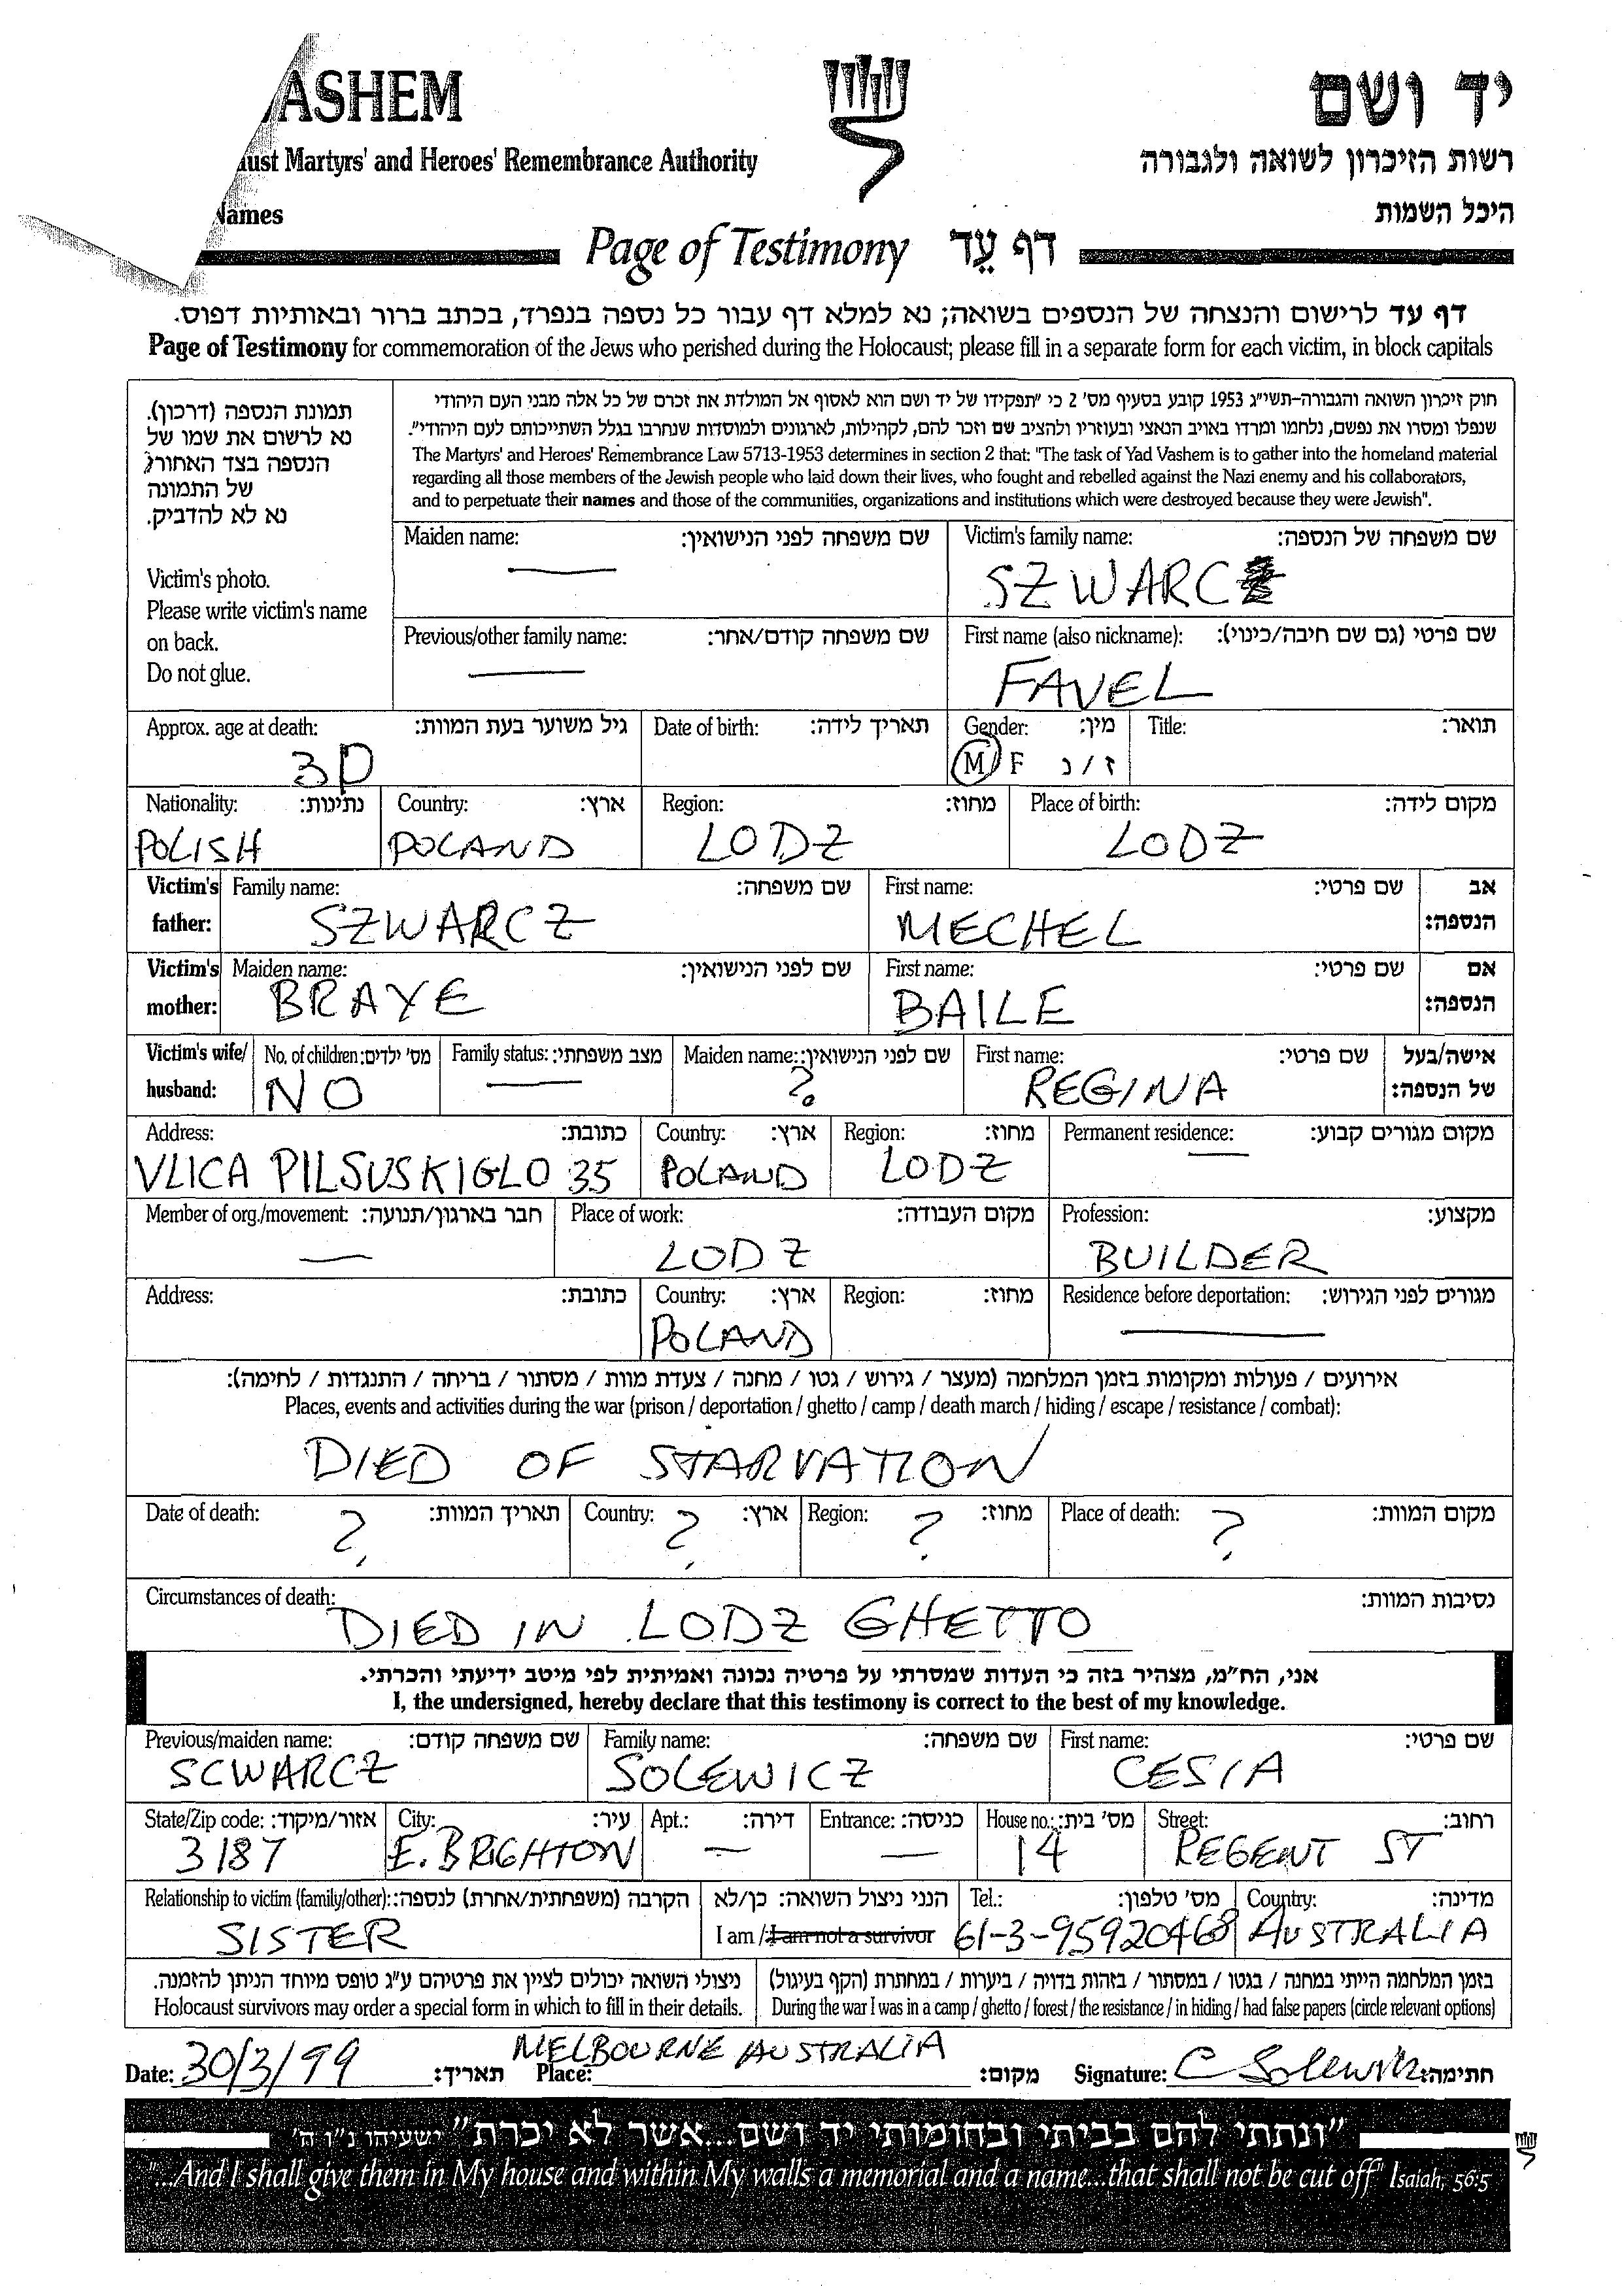 ASHEM
יד ושם
ust Martyrs' and Heroes' Remembrance Authority
רשות הזיכרון לשואה ולגבורה
Names
היכל השמות
Page of Testimony דף עֵד
דף עד לרישום והנצחה של הנספים בשואה; נא למלא דף עבור כל נספה בנפרד, בכתב ברור ובאותיות דפוס.
Page of Testimony for commemoration of the Jews who perished during the Holocaust; please fill in a separate form for each victim, in block capitals
תמונת הנספה (דרכון).
נא לרשום את שמו של
הנספה בצד האחורי
של התמונה
נא לא להדביק.
Victim's photo.
Please write victim's name
on back.
Do not glue.
חוק זיכרון השואה והגבורה-תשי"ג 1953 קובע בסעיף מס' 2 כי "תפקידו של יד ושם הוא לאסוף אל המולדת את זכרם של כל אלה מבני העם היהודי
שנפלו ומסרו את נפשם, נלחמו ומרדו באויב הנאצי ובעוזריו ולהציב שם וזכר להם, לקהילות, לארגונים ולמוסדות שנחרבו בגלל השתייכותם לעם היהודי".
The Martyrs' and Heroes' Remembrance Law 5713-1953 determines in section 2 that: "The task of Yad Vashem is to gather into the homeland material
regarding all those members of the Jewish people who laid down their lives, who fought and rebelled against the Nazi enemy and his collaborators,
and to perpetuate their names and those of the communities, organizations and institutions which were destroyed because they were Jewish".
Maiden name: שם משפחה לפני הנישואין: Victim's family name: שם משפחה של הנספה:
— SZWARC
Previous/other family name: שם משפחה קודם/אחר: First name (also nickname): שם פרטי (גם שם חיבה/כינוי):
— FAVEL
Approx. age at death: גיל משוער בעת המוות: Date of birth: תאריך לידה: Gender: מין: Title: תואר:
30 M/F ז/נ
Nationality: נתינות: Country: ארץ: Region: מחוז: Place of birth: מקום לידה:
POLISH POLAND LODZ LODZ
Victim's Family name: שם משפחה: First name: שם פרטי: אב
father: SZWARCZ MECHEL הנספה:
Victim's Maiden name: שם לפני הנישואין: First name: שם פרטי: אם
mother: BRAYE BAILE הנספה:
Victim's wife/ No. of children: מס' ילדים: Family status: מצב משפחתי: Maiden name: שם לפני הנישואין: First name: שם פרטי: אישה/בעל
husband: NO — ? REGINA של הנספה:
Address: כתובת: Country: ארץ: Region: מחוז: Permanent residence: מקום מגורים קבוע:
VLICA PILSUSKIGLO 35 POLAND LODZ —
Member of org./movement: חבר בארגון/תנועה: Place of work: מקום העבודה: Profession: מקצוע:
— LODZ BUILDER
Address: כתובת: Country: ארץ: Region: מחוז: Residence before deportation: מגורים לפני הגירוש:
POLAND —
אירועים / פעולות ומקומות בזמן המלחמה (מעצר / גירוש / גטו / מחנה / צעדת מוות / מסתור / בריחה / התנגדות / לחימה):
Places, events and activities during the war (prison / deportation / ghetto / camp / death march / hiding / escape / resistance / combat):
DIED OF STARVATION
Date of death: תאריך המוות: Country: ארץ: Region: מחוז: Place of death: מקום המוות:
? ? ? ?
Circumstances of death: נסיבות המוות:
DIED IN LODZ GHETTO
אני, הח"מ, מצהיר בזה כי העדות שמסרתי על פרטיה נכונה ואמיתית לפי מיטב ידיעתי והכרתי.
I, the undersigned, hereby declare that this testimony is correct to the best of my knowledge.
Previous/maiden name: שם משפחה קודם: Family name: שם משפחה: First name: שם פרטי:
SCWARCZ SOLEWICZ CESIA
State/Zip code: אזור/מיקוד: City: עיר: Apt.: דירה: Entrance: כניסה: House no.: מס' בית: Street: רחוב:
3187 E. BRIGHTON — — 14 REGENT ST
Relationship to victim (family/other): הקרבה (משפחתית/אחרת) לנספה: הנני ניצול השואה: כן/לא Tel.: מס' טלפון: Country: מדינה:
SISTER I am / I am not a survivor 61-3-95920468 AUSTRALIA
ניצולי השואה יכולים לציין את פרטיהם ע"ג טופס מיוחד הניתן להזמנה. בזמן המלחמה הייתי במחנה / בגטו / במסתור / בזהות בדויה / ביערות / במחתרת (הקף בעיגול)
Holocaust survivors may order a special form in which to fill in their details. During the war I was in a camp / ghetto / forest / the resistance / in hiding / had false papers (circle relevant options)
Date: 30/3/99 תאריך: Place: MELBOURNE AUSTRALIA מקום: Signature: C Solewicz חתימה:
"ונתתי להם בביתי ובחומותי יד ושם....אשר לא יכרת" ישעיהו נ"ו ה'
"...And I shall give them in My house and within My walls a memorial and a name...that shall not be cut off" Isaiah, 56:5